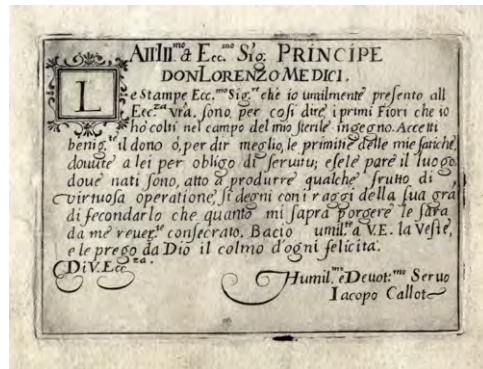 All Ill.mo & Ecc.mo Sig. PRINCIPE
DON LORENZO MEDICI.
Le Stampe Ecc.mo Sig.re che io umilmente presento all
Ecc.za vra. sono, per cosi dire, i primi Fiori che io
ho colti nel campo del mio sterile ingegno. Accetti
benig.te il dono o, per dir meglio, le primitie delle mie fatiche,
douute a lei per obligo di seruitu; e se le pare il luogo,
doue nati sono, atto a produrre qualche frutto di
virtuosa operatione, si degni con i raggi della sua gra
di fecondarlo che quanto mi sapra porgere le sara
da me reuer.te consecrato. Bacio umil.te a V.E. la Veste,
e le prego da Dio il colmo d'ogni felicita.
Di V. Ecc.za.
Humil.mo e Deuot.mo Seruo
Iacopo Callot